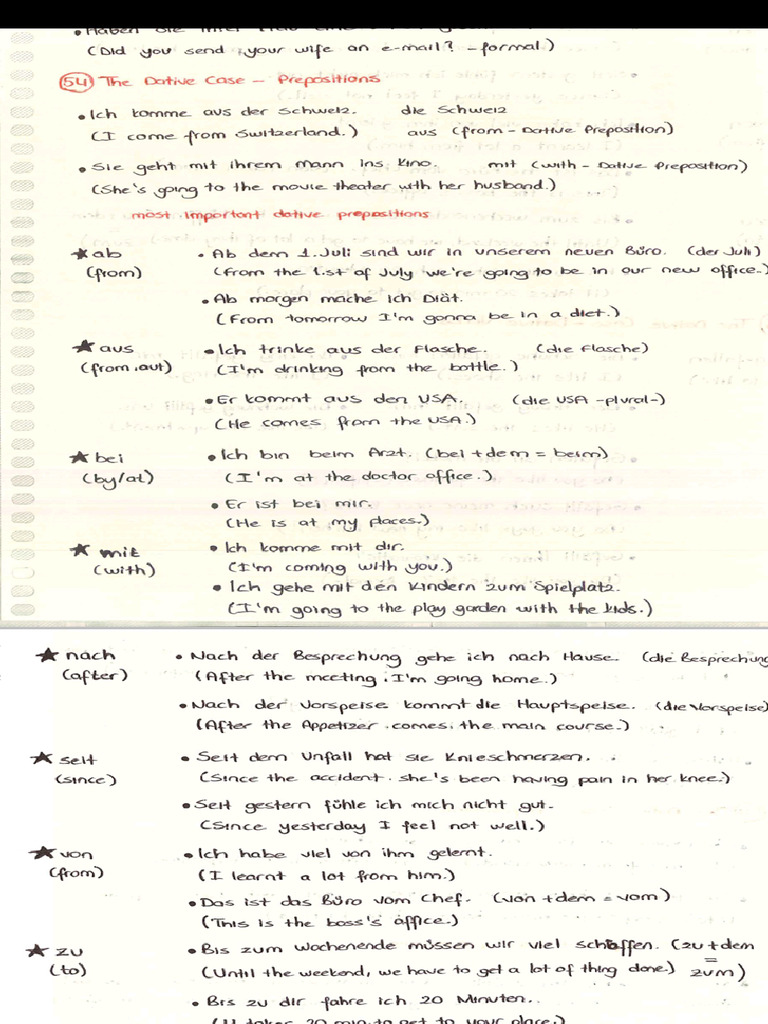 (Did you send your wife an e-mail? - formal)
54 The Dative Case - Prepositions
• Ich komme aus der Schweiz. die Schweiz
(I come from Switzerland.) aus (from - Dative Preposition)
• Sie geht mit ihrem mann ins Kino. mit (with - Dative Preposition)
(She's going to the movie theater with her husband.)
most important dative prepositions
★ ab • Ab dem 1. Juli sind wir in unserem neuen Büro. (der Juli)
(from) (From the 1.st of July we're going to be in our new office.)
• Ab morgen mache ich Diät.
(From tomorrow I'm gonna be in a diet.)
★ aus • Ich trinke aus der Flasche. (die Flasche)
(from, out) (I'm drinking from the bottle.)
• Er kommt aus den USA. (die USA -plural-)
(He comes from the USA.)
★ bei • Ich bin beim Arzt. (bei + dem = beim)
(by/at) (I'm at the doctor office.)
• Er ist bei mir.
(He is at my places.)
★ mit • Ich komme mit dir.
(with) (I'm coming with you.)
• Ich gehe mit den Kindern zum Spielplatz.
(I'm going to the play garden with the kids.)
★ nach • Nach der Besprechung gehe ich nach Hause. (die Besprechung
(after) (After the meeting, I'm going home.)
• Nach der Vorspeise kommt die Hauptspeise. (die Vorspeise)
(After the Appetizer comes the main course.)
★ seit • Seit dem Unfall hat sie Knieschmerzen.
(since) (Since the accident she's been having pain in her knee.)
• Seit gestern fühle ich mich nicht gut.
(Since yesterday I feel not well.)
★ von • Ich habe viel von ihm gelernt.
(from) (I learnt a lot from him.)
• Das ist das Büro vom Chef. (von + dem = vom)
(This is the boss's office.)
★ zu • Bis zum Wochenende müssen wir viel schaffen. (zu + dem
(to) (Until the weekend, we have to get a lot of thing done.) = zum)
• Bis zu dir fahre ich 20 Minuten.
(It takes 20 min to get to your place.)